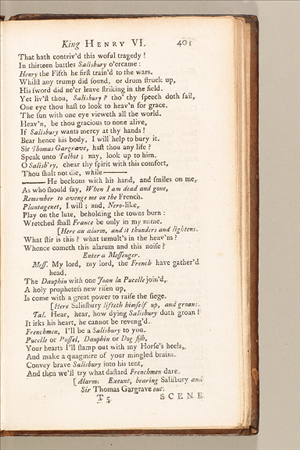 King HENRY VI. 401
That hath contriv'd this woful tragedy!
In thirteen battles Salisbury o'ercame:
Henry the Fifth he first train'd to the wars.
Whilst any trump did sound, or drum struck up,
His sword did ne'er leave striking in the field.
Yet liv'st thou, Salisbury? tho' thy speech doth fail,
One eye thou hast to look to heav'n for grace.
The sun with one eye vieweth all the world.
Heav'n, be thou gracious to none alive,
If Salisbury wants mercy at thy hands!
Bear hence his body, I will help to bury it.
Sir Thomas Gargrave, hast thou any life?
Speak unto Talbot; nay, look up to him.
O Salisb'ry, chear thy spirit with this comfort,
Thou shalt not die, while———
—— He beckons with his hand, and smiles on me,
As who should say, When I am dead and gone,
Remember to avenge me on the French.
Plantagenet, I will; and, Nero-like,
Play on the lute, beholding the towns burn:
Wretched shall France be only in my name.
[Here an alarm, and it thunders and lightens.
What stir is this? what tumult's in the heav'ns?
Whence cometh this alarum and this noise?
Enter a Messenger.
Mess. My lord, my lord, the French have gather'd
head.
The Dauphin with one Joan la Pucelle join'd,
A holy prophetess new risen up,
Is come with a great power to raise the siege.
[Here Salisbury lifteth himself up, and groans.
Tal. Hear, hear, how dying Salisbury doth groan!
It irks his heart, he cannot be reveng'd.
Frenchmen, I'll be a Salisbury to you.
Pucelle or Pussel, Dauphin or Dog-fish,
Your hearts I'll stamp out with my Horse's heels,
And make a quagmire of your mingled brains.
Convey brave Salisbury into his tent,
And then we'll try what dastard Frenchmen dare.
[Alarm. Exeunt, bearing Salisbury and
Sir Thomas Gargrave out.
T 5 SCENE